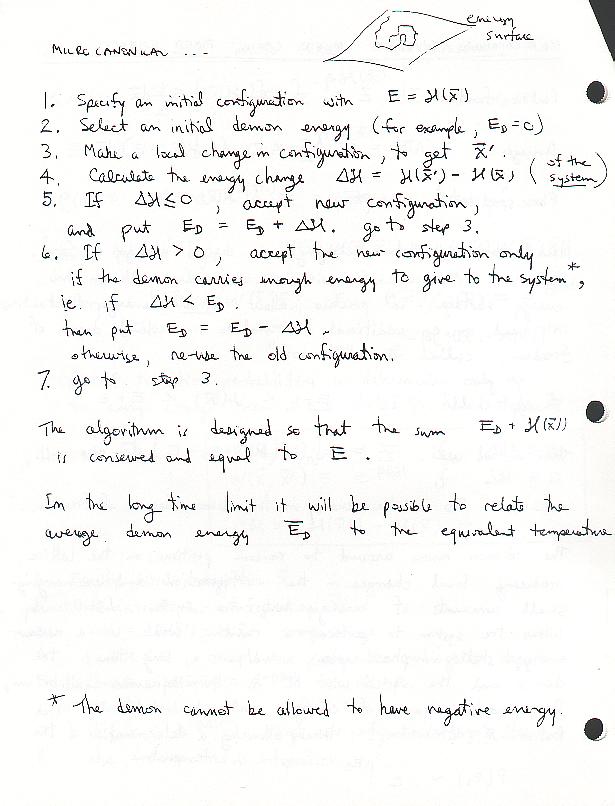 MICROCANONICAL ...
energy
surface
1. Specify an initial configuration with E = H(x̄)
2. Select an initial demon energy (for example, E_D = 0)
3. Make a local change in configuration, to get x̄'.
4. Calculate the energy change ΔH = H(x̄') - H(x̄) (of the system)
5. If ΔH ≤ 0, accept new configuration,
and put E_D = E_D + ΔH. go to step 3.
6. If ΔH > 0, accept the new configuration only
if the demon carries enough energy to give to the system*,
ie. if ΔH < E_D.
then put E_D = E_D - ΔH.
otherwise, re-use the old configuration.
7. go to step 3.
The algorithm is designed so that the sum E_D + H(x̄))
is conserved and equal to E.
In the long time limit it will be possible to relate the
average demon energy Ē_D to the equivalent temperature
* The demon cannot be allowed to have negative energy.